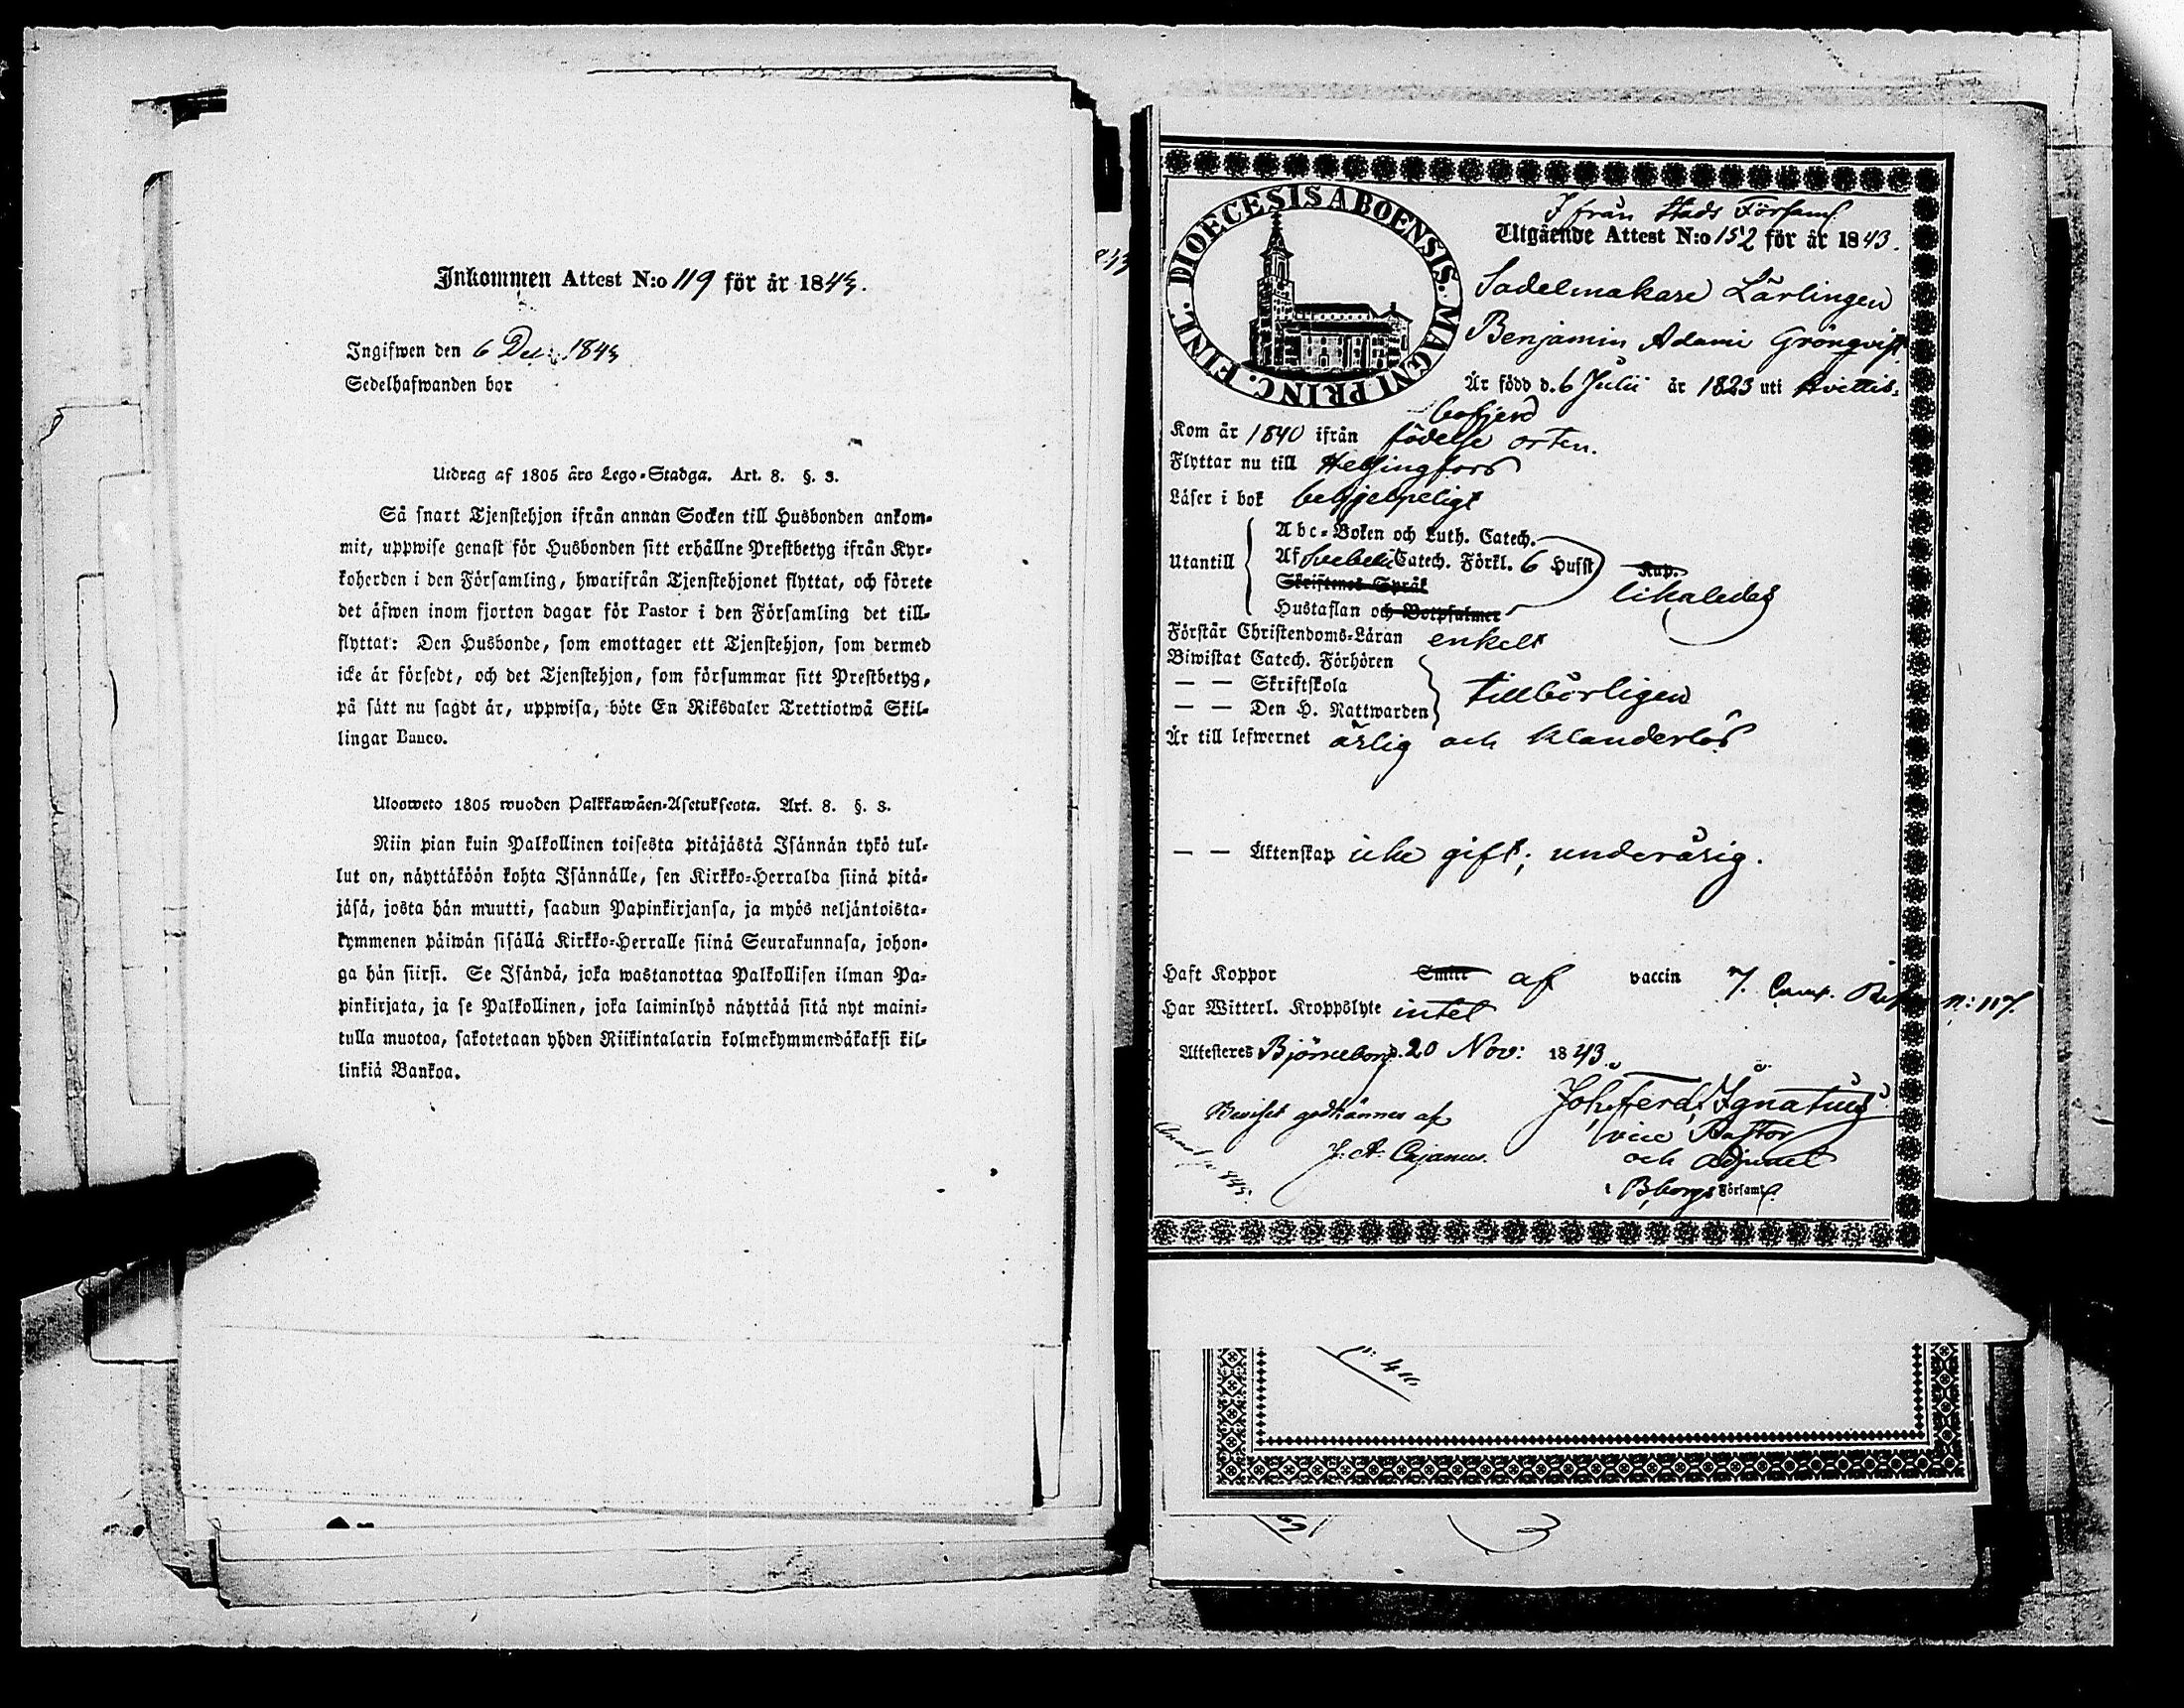 Inkommen Attest N:o 119 för år 1843.
Ingifwen den 6 Dec: 1843
Sedelhafwanden bor
Utdrag af 1805 års Lego-Stadga. Art. 8. §. 3.
Så snart Tjenstehjon ifrån annan Socken till Husbonden ankom-
mit, uppwise genast för Husbonden sitt erhållne Prestbetyg ifrån Kyr-
koherden i den Församling, hwarifrån Tjenstehjonet flyttat, och förete
det äfwen inom fjorton dagar för Pastor i den Församling det till-
flyttat: Den Husbonde, som emottager ett Tjenstehjon, som dermed
icke är försedt, och det Tjenstehjon, som försummar sitt Prestbetyg,
på sätt nu sagdt är, uppwisa, böte En Riksdaler Trettiotwå Skil-
lingar Banco.
Ulosweto 1805 wuoden Palkkawäen-Asetuksesta. Art. 8. §. 3.
Niin pian kuin Palkollinen toisesta pitäjästä Isännän tykö tul-
lut on, näyttäköön kohta Isännälle, sen Kirkko-Herralda siinä pitä-
jäsä, josta hän muutti, saadun Papinkirjansa, ja myös neljäntoista-
kymmenen päiwän sisällä Kirkko-Herralle siinä Seurakunnasa, johon-
ga hän siirsi. Se Isändä, joka wastanottaa Palkollisen ilman Pa-
pinkirjata, ja se Palkollinen, joka laiminlyö näyttää sitä nyt maini-
tulla muotoa, sakotetaan yhden Riikintalarin kolmekymmendäkaksi kil-
linkiä Bankoa.
DIOECESIS ABOENSIS. MAGNI PRINC. FINL.
Ifrån Stads Församl.
Utgående Attest N:o 152 för år 1843.
Sadelmakare Lärlingen
Benjamin Adami Grönqvist
Är född d. 6 Julii år 1823 uti Hvittis-
bofjerd
Kom år 1840 ifrån födelse orten.
Flyttar nu till Helsingfors
Läser i bok behjelpeligt
Utantill
Abc-Boken och Luth. Catech.
Af Svebelii Catech. Förkl. 6 Hufst Kap.
Skriftenes Språk
likaledes
Hustaflan och Botpsalmer
Förstår Christendoms-Läran enkelt
Biwistat Catech. Förhören
— — Skriftskola
tillbörligen
— — Den H. Nattwarden
Är till lefwernet ärlig och klanderlös
— — Äktenskap icke gift; underårig.
Haft Koppor Smitt af vaccin 7. Comp. N: 117.
Har Witterl. Kroppslyte intet
Attesteres Björneborg d. 20 Nov: 1843.
Joh. Ferd. Ignatius
godkännes af
vice Pastor
J. A. Cajanus.
och Adjunct
i Bborgs Församl.